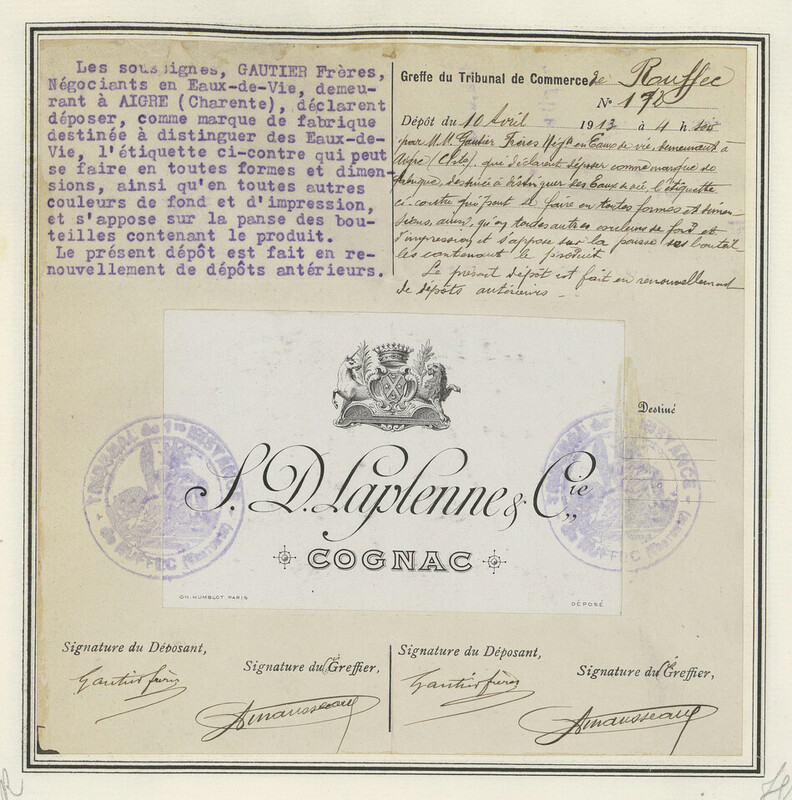 Les soussignes, GAUTIER Frères,
Négociants en Eaux-de-Vie, demeu-
rant à AIGRE (Charente), déclarent
déposer, comme marque de fabrique
destinée à distinguer des Eaux-de-
Vie, l'étiquette ci-contre qui peut
se faire en toutes formes et dimen-
sions, ainsi qu'en toutes autres
couleurs de fond et d'impression,
et s'appose sur la panse des bou-
teilles contenant le produit.
Le présent dépôt est fait en re-
nouvellement de dépôts antérieurs.
Greffe du Tribunal de Commerce de Ruffec
N°
Dépôt du 10 Avril 1913 à 4 h. soir
par M.M. Gautier Frères Négts en Eaux de vie, demeurant à
Aigre (Chte) qui déclarent déposer comme marque de
fabrique, destinée à distinguer des Eaux de vie, l'étiquette
ci-contre qui peut se faire en toutes formes et dimen-
sions, ainsi qu'en toutes autres couleurs de fond et
d'impression et s'appose sur la panse des bouteil-
les contenant le produit
Le présent dépôt est fait en renouvellement
de dépôts antérieurs
Destiné
S. D. Laplenne & Cie
COGNAC
CH. HUMBLOT PARIS
DÉPOSÉ
TRIBUNAL de 1re INSTANCE
de RUFFEC (Charente)
TRIBUNAL de 1re INSTANCE
de RUFFEC (Charente)
Signature du Déposant,
Signature du Greffier,
Gautier frères
Signature du Déposant,
Signature du Greffier,
Gautier frères